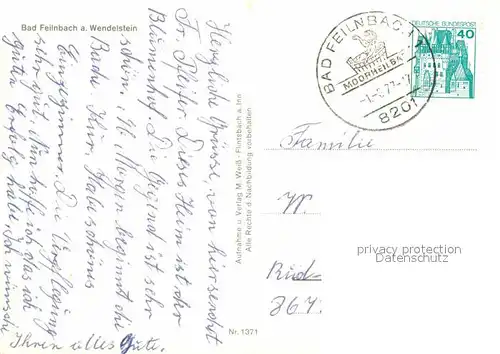 Bad Feilnbach a. Wendelstein
Herzliche Grüsse, von hier sendet
Fr. Pfister Dieses Heim ist der
Blumenhof Die Gegend ist sehr
schön, M. Morgen beginnt die
Bade Kur Habe schönes
Einzelzimmer Die Verpflegung
sehr gut, Nun hoffe ich das ich
gute Erfolg habe, ich wünsche
Ihnen alles Gute.
Aufnahme u. Verlag M. Weiß · Flintsbach a. Inn
Alle Rechte d. Nachbildung vorbehalten
Nr. 1371
BAD FEILNBACH
MOORHEILBAD
8201
DEUTSCHE BUNDESPOST
40
Familie
W.
privacy protection
Datenschutz
Ried
867